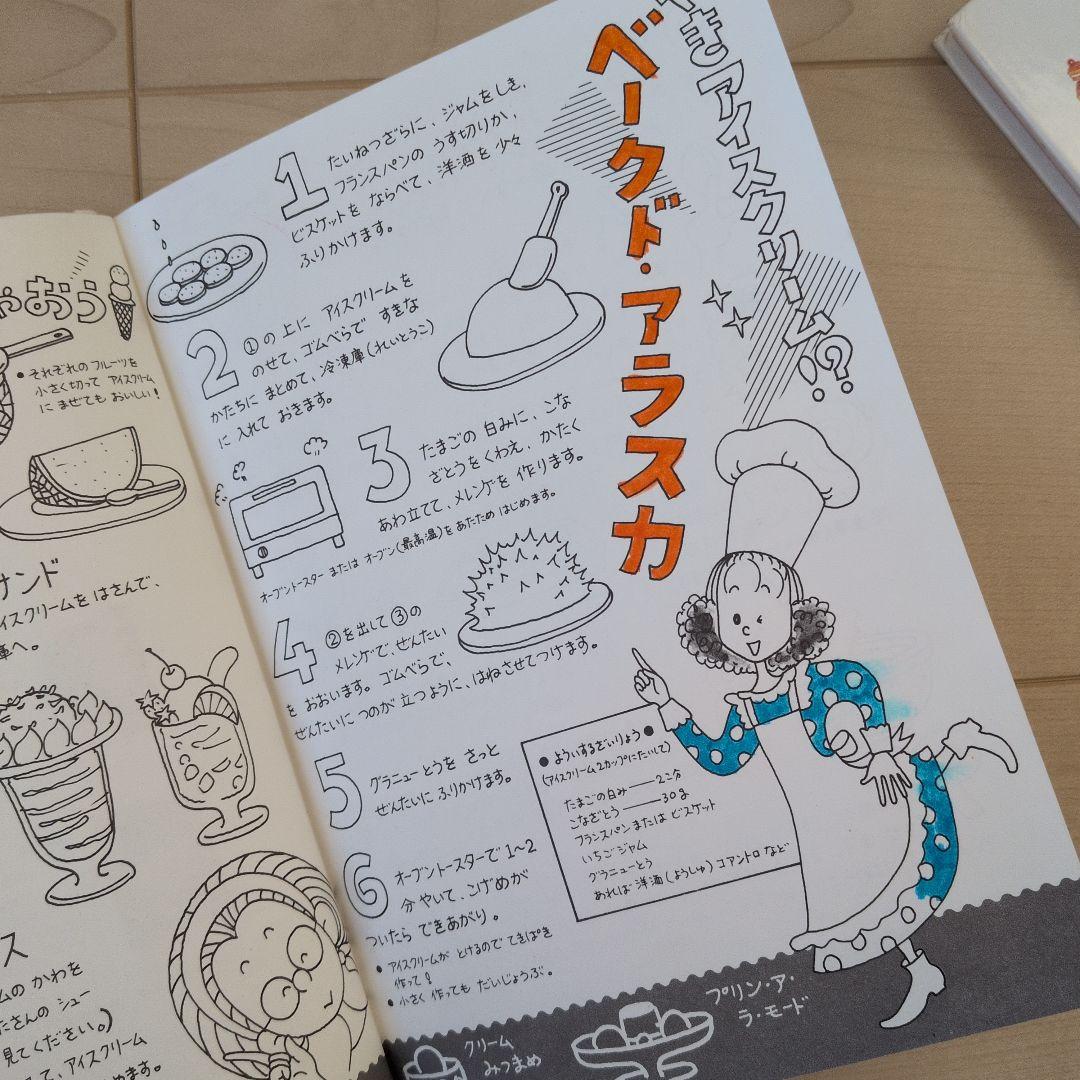 ゃおう
• それぞれの フルーツを
小さく切って アイスクリーム
に まぜても おいしい!
サンド
アイスクリームを はさんで、
庫へ。
ス
ームの かわを
たさんの シュー
見てください。)
て、アイスクリーム
めます。
やきアイスクリーム!?
ベークド・アラスカ
1
たいねつざらに、ジャムをしき、
フランスパンの うす切りか、
ビスケットを ならべて、洋酒を 少々
ふりかけます。
2
①の上に アイスクリームを
のせて、ゴムべらで すきな
かたちに まとめて、冷凍庫(れいとうこ)
に 入れて おきます。
3
たまごの 白みに、こな
ざとうをくわえ、かたく
あわ立てて、メレンゲを 作ります。
オーブントースター または オーブン(最高温)を あたため はじめます。
4
②を出して③の
メレンゲで、ぜんたい
を おおいます。ゴムべらで、
ぜんたいに つのが 立つように、はねさせてつけます。
5
グラニューとうを さっと
ぜんたいに ふりかけます。
6
オーブントースターで1〜2
分 やいて、こげめが
ついたら できあがり。
• アイスクリームが とけるので てきぱき
作って!
• 小さく 作っても だいじょうぶ。
● よういするざいりょう ●
(アイスクリーム2カップにたいして)
たまごの白み——2こ分
こなざとう——30g
フランスパン または ビスケット
いちごジャム
グラニューとう
あれば 洋酒(ようしゅ)コアントロ など
クリーム
みつまめ
プリン・ア・
ラ・モード